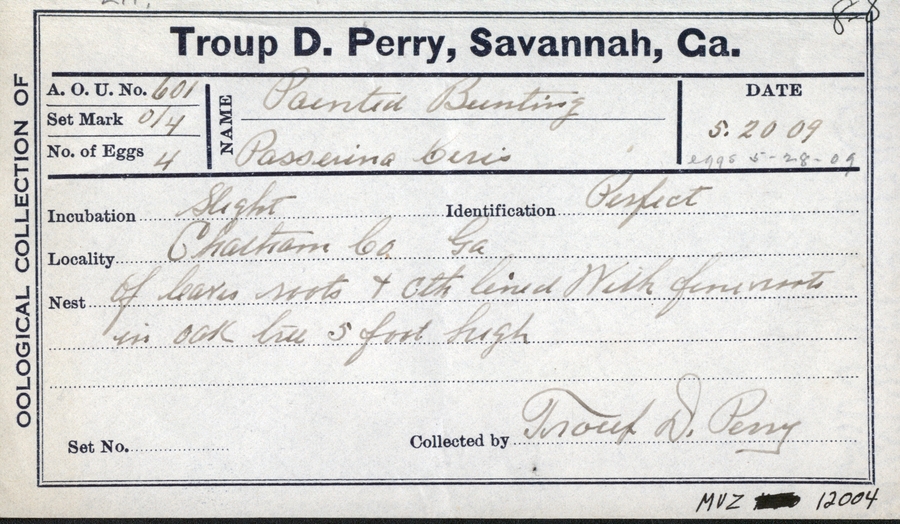 8-8
Troup D. Perry, Savannah, Ga.
OOLOGICAL COLLECTION OF
A. O. U. No. 601
Set Mark 0/4
No. of Eggs 4
NAME
Painted Bunting
Passerina Ceris
DATE
5. 20 09
eggs 5-28-09
Incubation Slight
Identification Perfect
Locality Chatham Co Ga
Nest of leaves roots + cth lined With fine roots
in oak tree 5 foot high
Set No.
Collected by Troup D. Perry
MVZ 12004